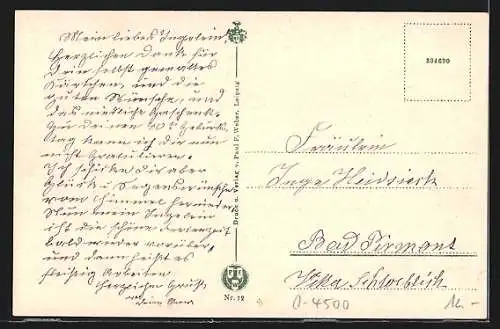 Mein liebes Ingelein,
Herzlichen Dank für
Dein selbst gemaltes
Kärtchen, und die
guten Wünsche, und
das niedliche Geschenk.
Zu Deinem Geburts
tag kann ich dir nun
nicht Gratulieren.
Ich schicke Dir aber
Glück u. Segenswünsche
vom Himmel hernieder.
Nun mein Ingelein
ist die schöne Ferienzeit
bald wieder vorüber,
und dann heißt es
fleißig Arbeiten.
Herzlichen Gruß
Deine
Druck u. Verlag v. Paul F. Weber, Leipzig
Nr. 12
Fräulein
Inge
Bad Pirmont
Villa
0-4500